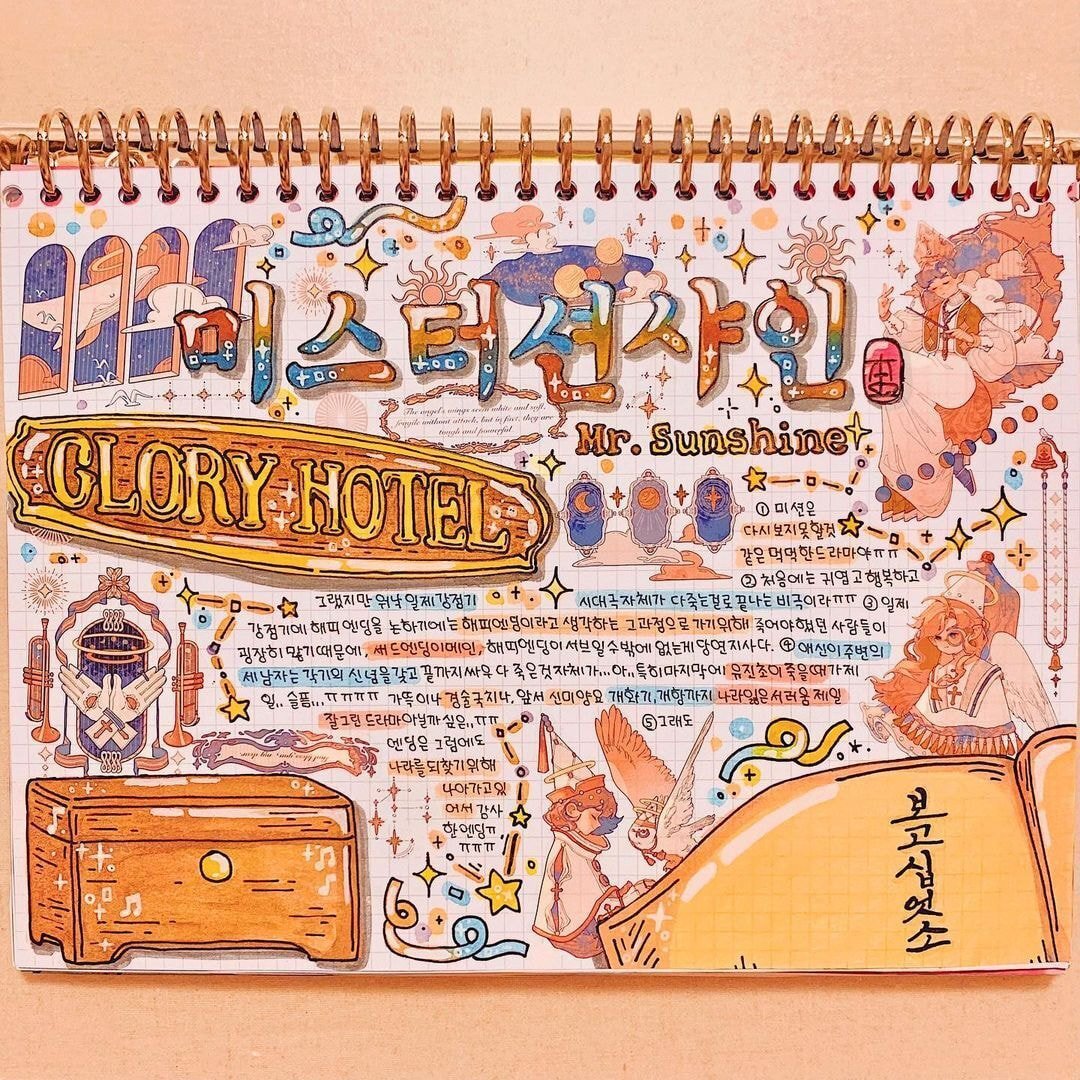 미스터션샤인
The angel's wings seem white and soft,
fragile without attack, but in fact, they are
tough and powerful.
Mr. Sunshine
GLORY HOTEL
① 미션은
다시 보지 못할것
같은 먹먹한드라마야ㅠㅠ
② 처음에는 귀엽고 행복하고
그랬지만 워낙 일제강점기 시대극자체가 다죽는걸로 끝나는 비극이라ㅠㅠ ③ 일제
강점기에 해피엔딩을 논하기에는 해피엔딩이라고 생각하는 그과정으로 가기위해 죽어야했던 사람들이
굉장히 많기 때문에, 새드엔딩이메인, 해피엔딩이 서브일수밖에 없는게 당연지사다. ④ 애신이주변의
세남자는 각기의 신념을 갖고 끝까지 싸우다 죽은것자체가...아.. 특히 마지막에 유진초이죽을때 가제
일.. 슬픔... ㅠㅠㅠㅠ 가뜩이나 경술국치나, 앞서 신미양요 개화기, 개항까지 나라잃은서러움 제일
잘그린 드라마아닐까 싶은..ㅠㅠ ⑤ 그래도
엔딩은 그럼에도
나라를되찾기위해
나아가고있
어서 감사
한엔딩ㅠ
ㅠㅠㅠ
보고십엇소